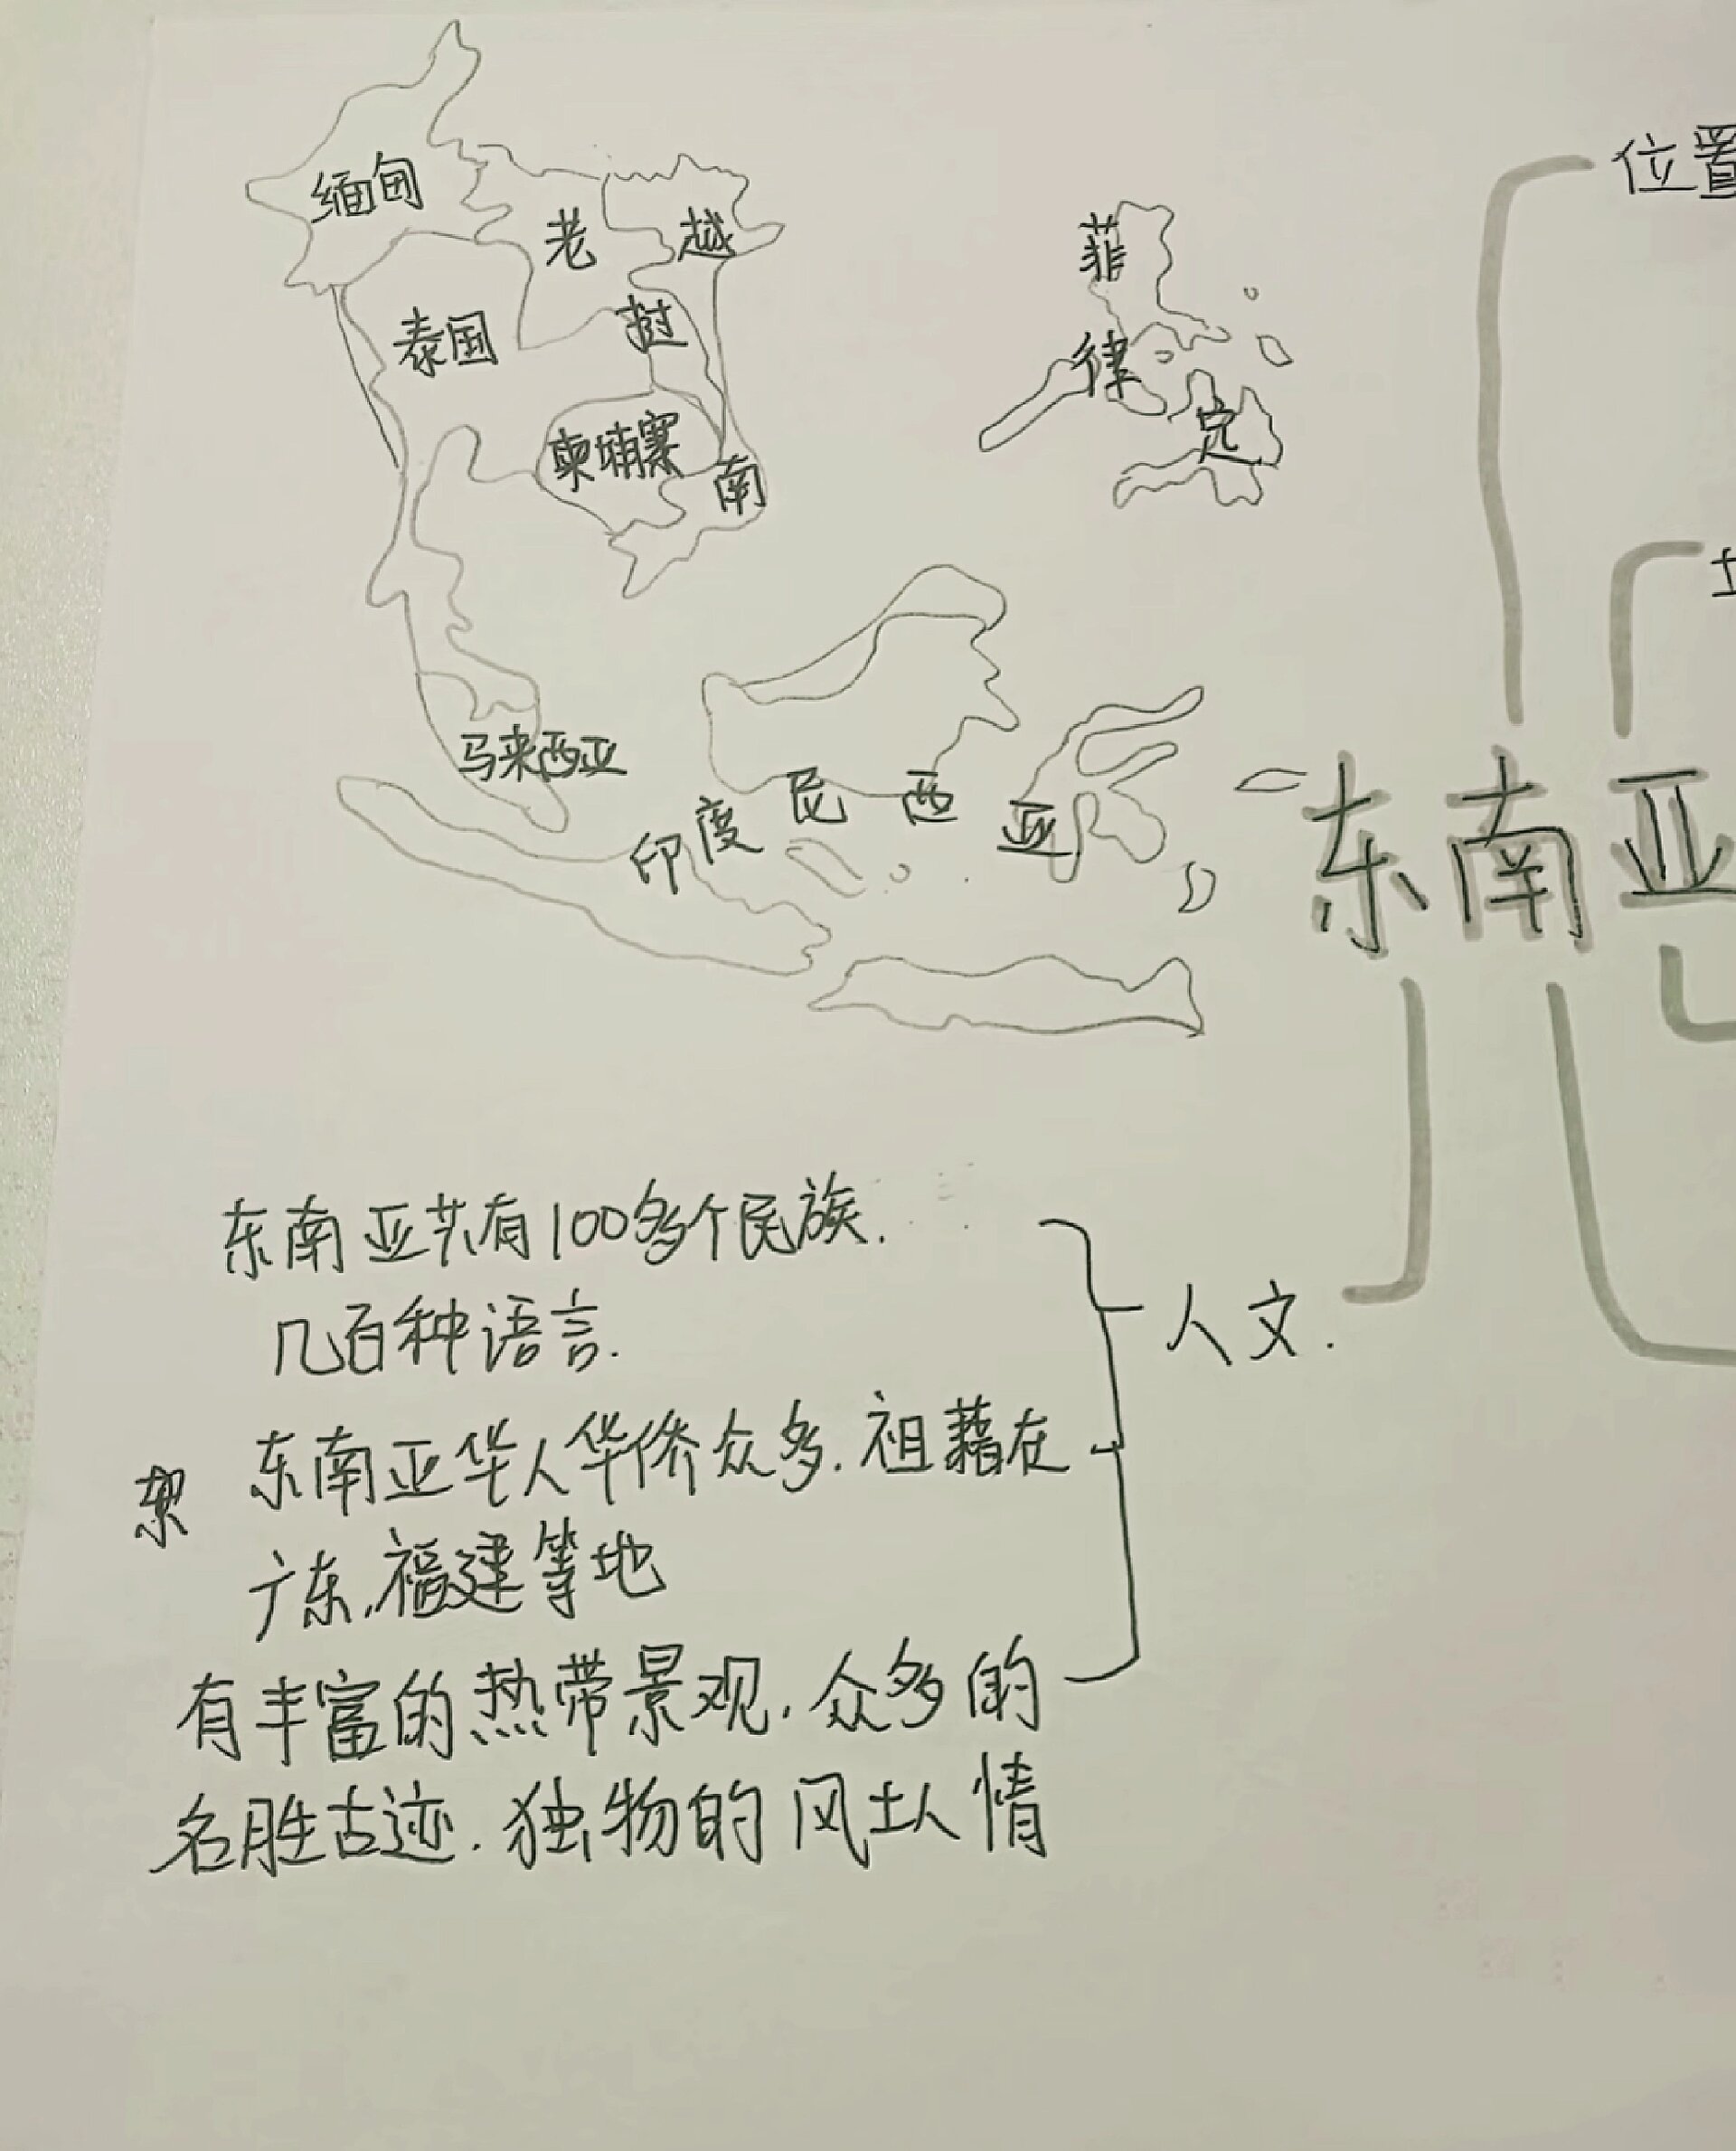 缅甸
老挝
越南
泰国
柬埔寨
菲律宾
马来西亚
印度尼西亚
位置
东南亚
人文.
东南亚共有100多个民族.
几百种语言.
东南亚华人华侨众多.祖藉在
广东,福建等地
有丰富的热带景观.众多的
名胜古迹.独物的风土人情